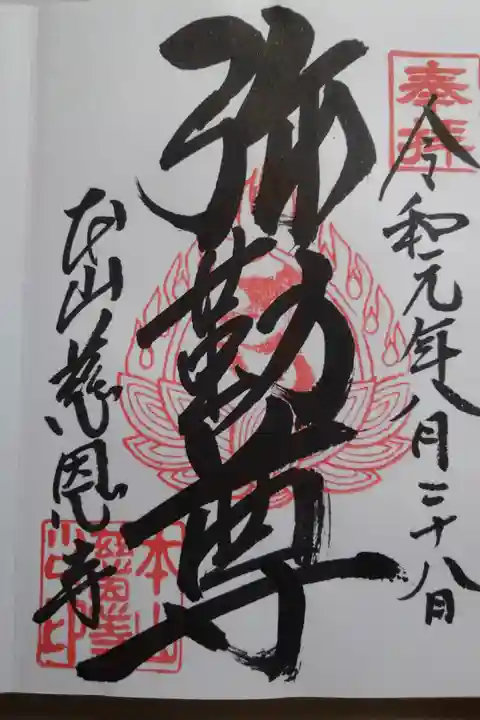 奉拝
令和元年八月二十八日
弥勒尊
本山慈恩寺
本山
慈恩寺